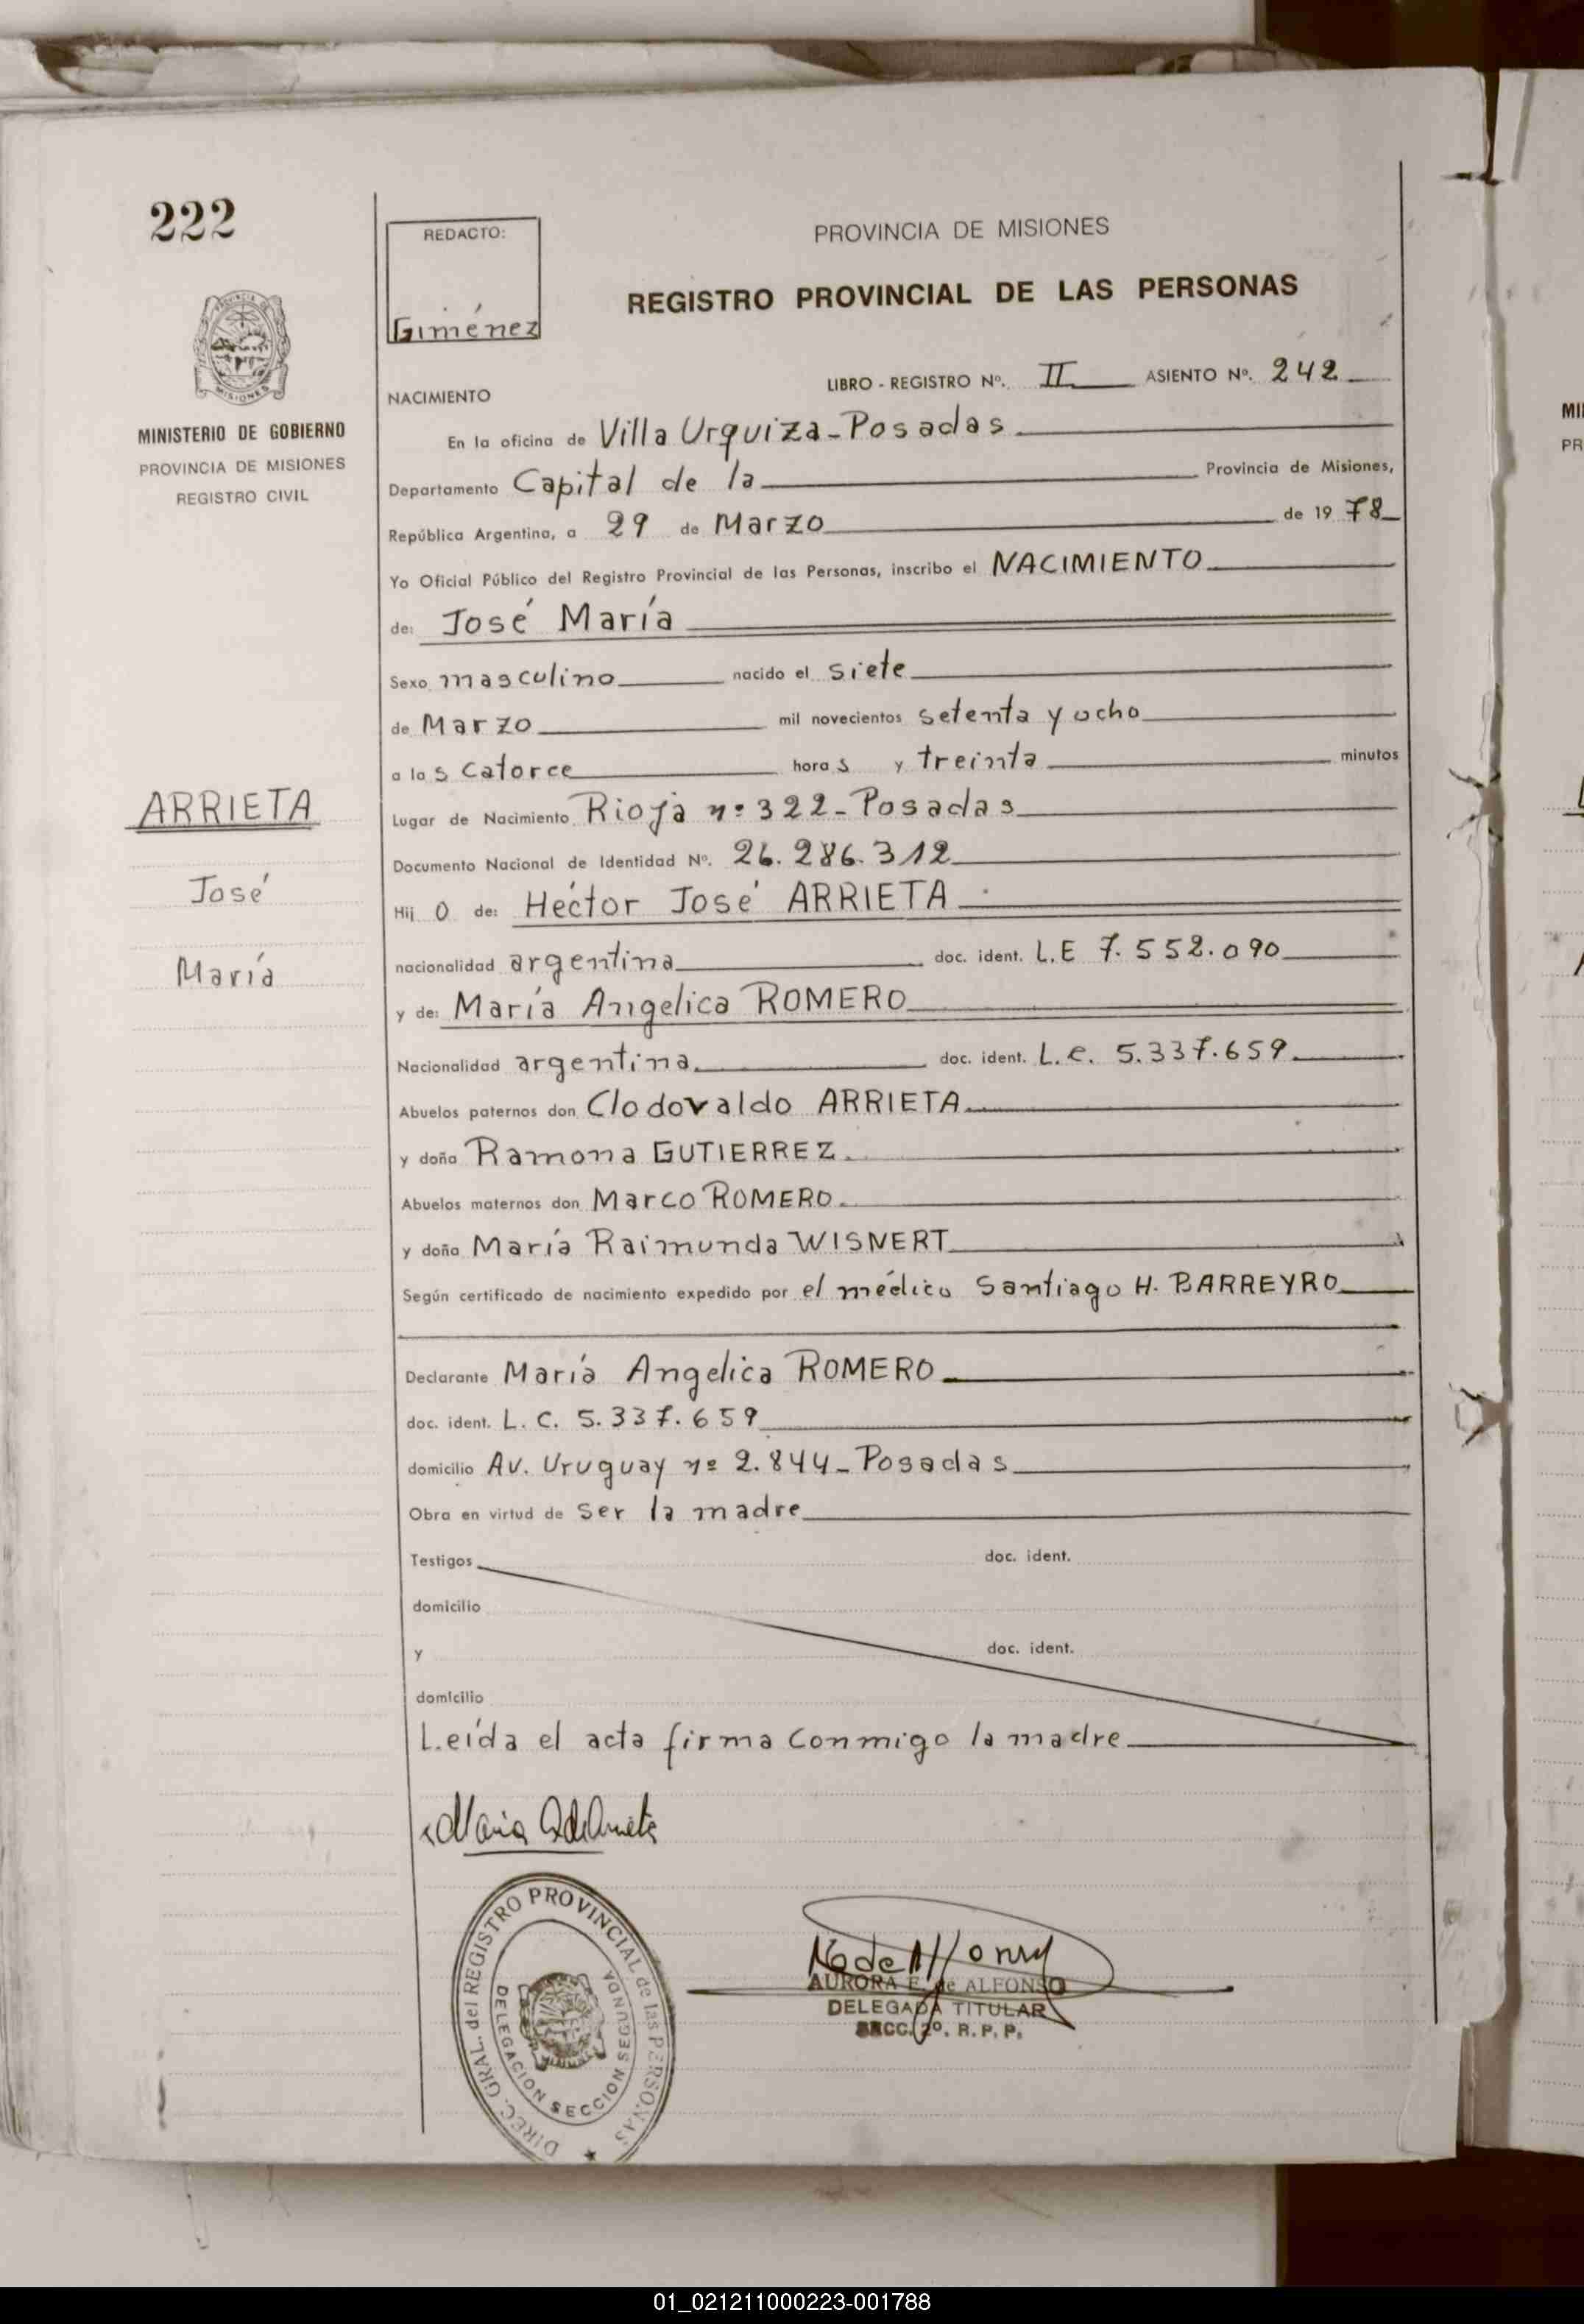 222
REDACTO:
Giménez
PROVINCIA DE MISIONES
REGISTRO PROVINCIAL DE LAS PERSONAS
MINISTERIO DE GOBIERNO
PROVINCIA DE MISIONES
REGISTRO CIVIL
LIBRO - REGISTRO Nº. II ASIENTO Nº. 242
NACIMIENTO
En la oficina de Villa Urquiza - Posadas
Departamento Capital de la Provincia de Misiones,
República Argentina, a 29 de Marzo de 1978
Yo Oficial Público del Registro Provincial de las Personas, inscribo el NACIMIENTO
de: José María
Sexo masculino nacido el siete
de Marzo mil novecientos setenta y ocho
a las catorce horas y treinta minutos
ARRIETA
José
María
Lugar de Nacimiento Rioja nº 322 - Posadas
Documento Nacional de Identidad Nº. 26.286.312
Hijo de: Héctor José ARRIETA
nacionalidad argentina doc. ident. L.E 7.552.090
y de: María Angelica ROMERO
Nacionalidad argentina doc. ident. L.C. 5.337.659
Abuelos paternos don Clodovaldo ARRIETA
y doña Ramona GUTIERREZ
Abuelos maternos don Marco ROMERO
y doña María Raimunda WISNERT
Según certificado de nacimiento expedido por el médico Santiago H. BARREYRO
Declarante María Angelica ROMERO
doc. ident. L. C. 5.337.659
domicilio Av. Uruguay nº 2.844 - Posadas
Obra en virtud de ser la madre
Testigos doc. ident.
domicilio
y doc. ident.
domicilio
Leída el acta firma conmigo la madre
María A de Arrieta
DIREC. GRAL. del REGISTRO PROVINCIAL de las PERSONAS
DELEGACION SECCION SEGUNDA
AURORA E. de ALFONSO
DELEGADA TITULAR
SECC. 2º. R. P. P.
01_021211000223-001788